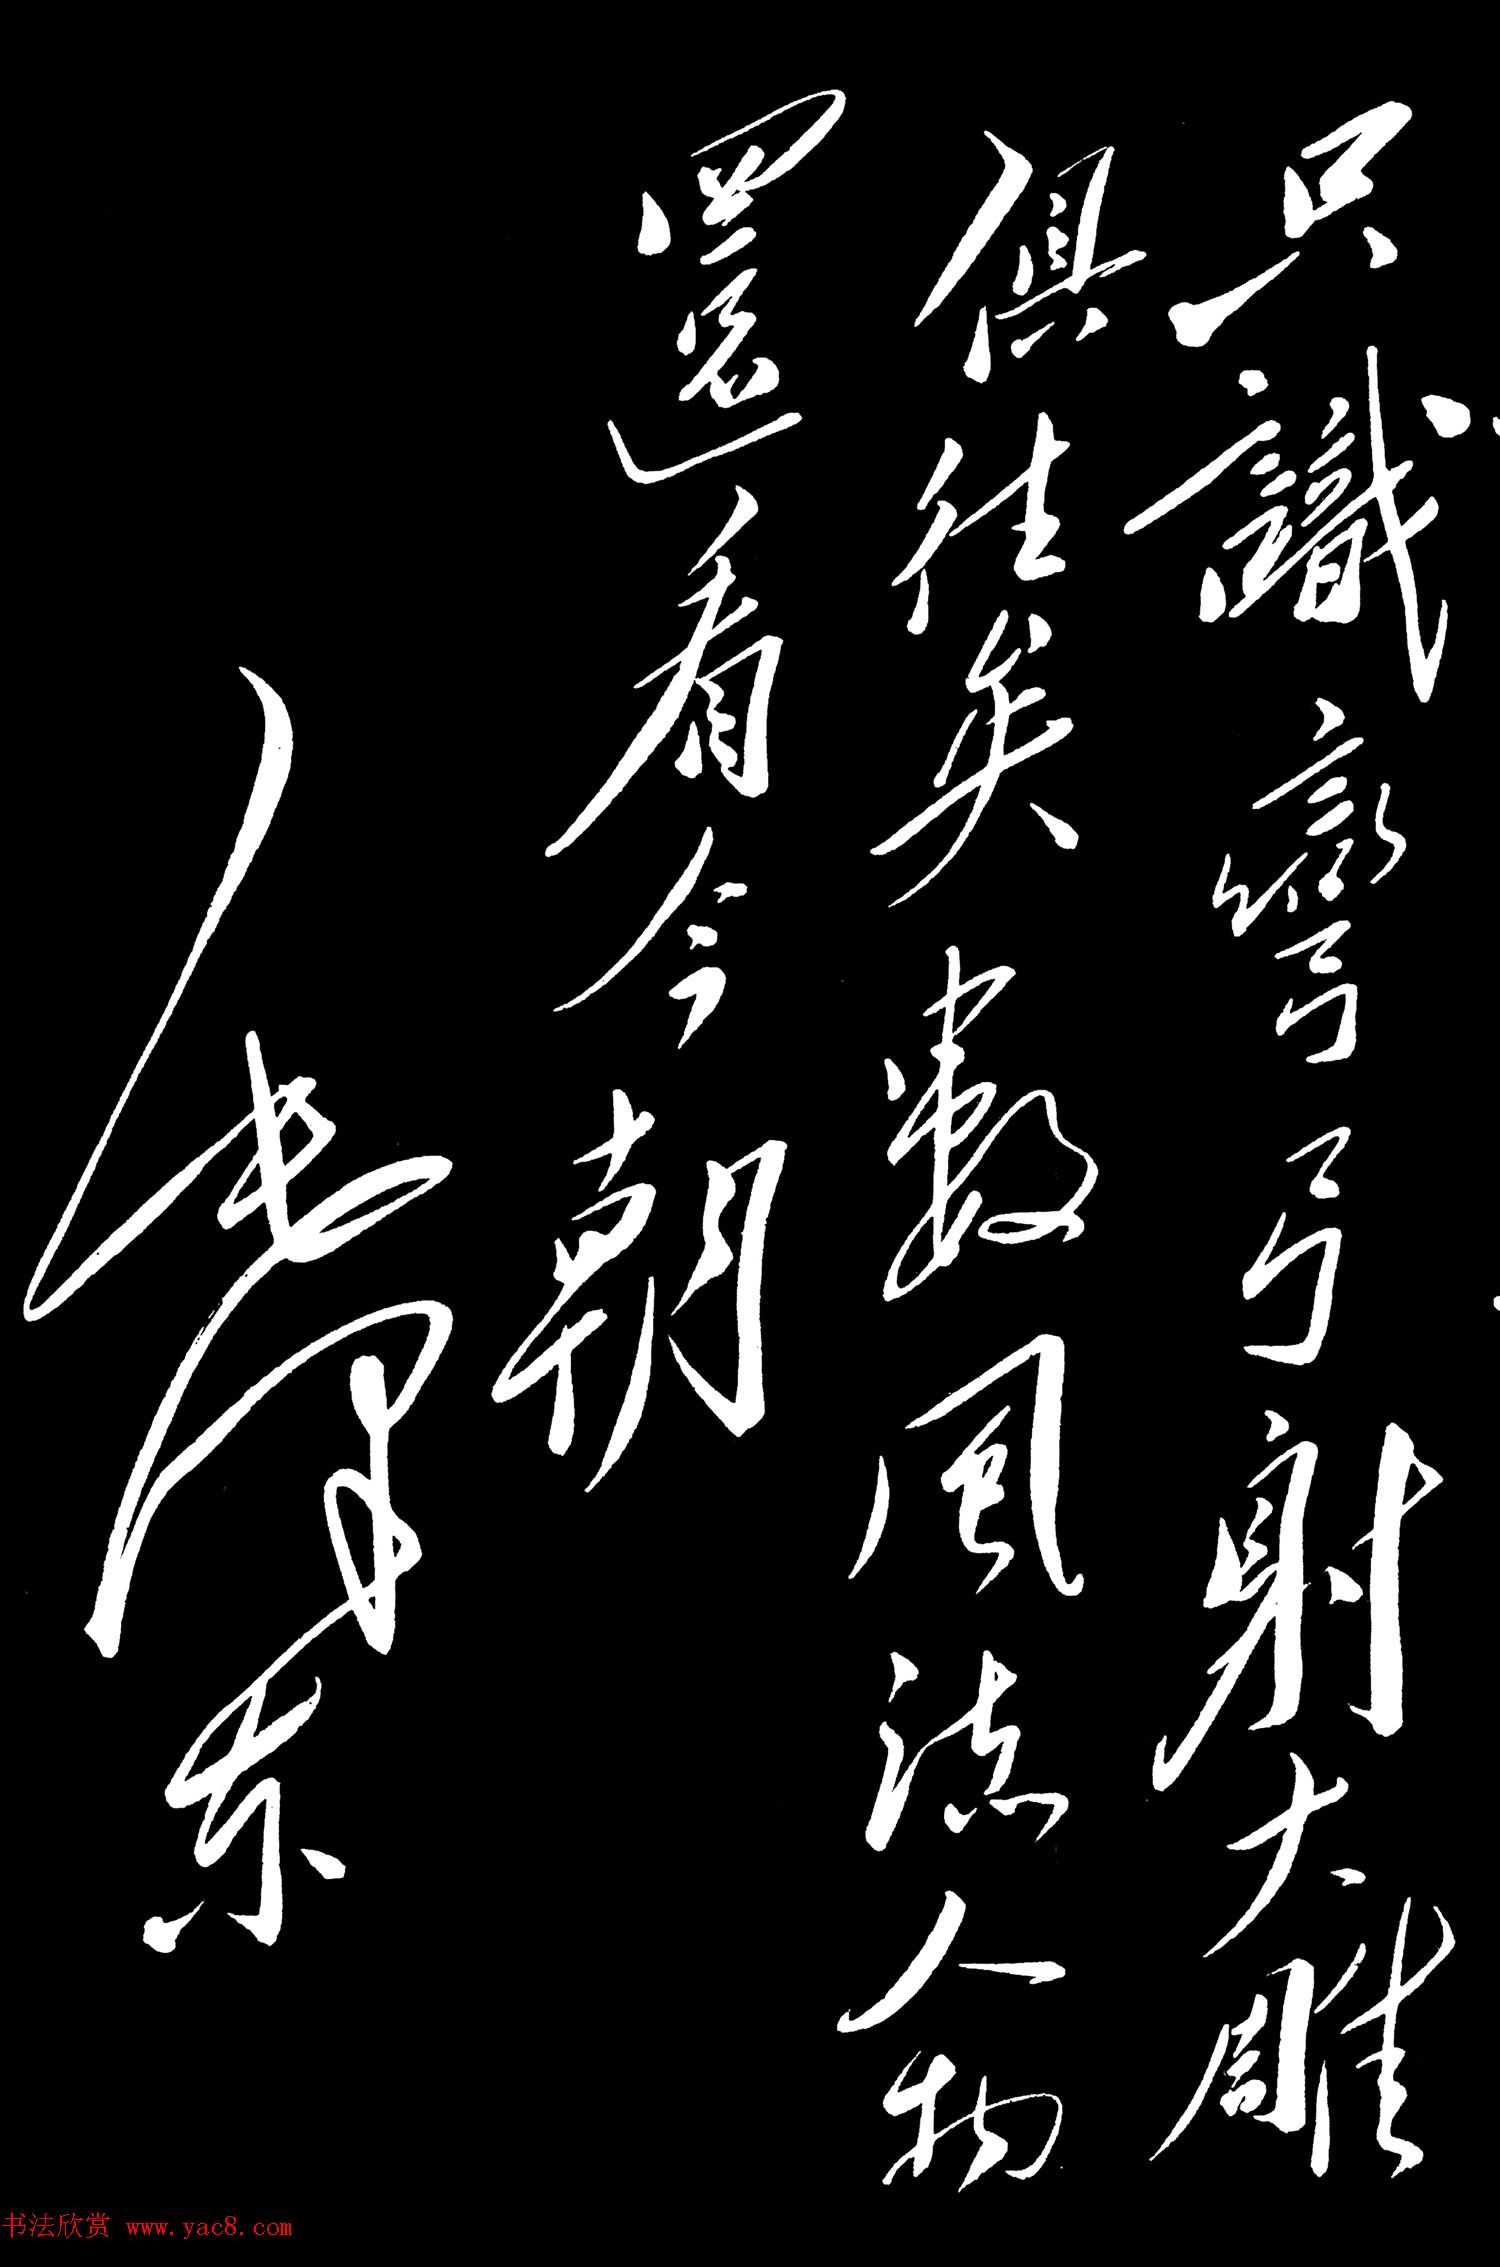 只識彎弓射大雕
俱往矣數風流人物
還看今朝
毛澤东
书法欣赏 www.yac8.com